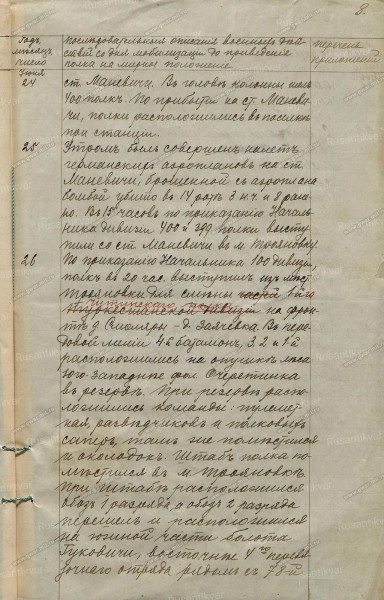 8.
Годъ,
мѣсяцъ,
число
Последовательныя описанія военныхъ дѣй-
ствій со дня мобилизаціи до приведенія
полка на мирное положеніе
перечень
приложеній
Іюня
24
ст. Маневичи. Въ головѣ колонны шелъ
400 полкъ. По прибытіи на ст. Маневи-
чи, полки расположились въ поселкѣ
при станціи.
25
Утромъ былъ совершенъ налетъ
германскихъ аэроплановъ на ст.
Маневичи, брошенной съ аэроплана
бомбой убито въ 14 ротѣ 3 н.ч. и 8 ране-
но. Въ 15 часовъ по приказанію Началь-
ника дивизіи 400 и 399 полки высту-
пили со ст. Маневичи въ м. Трояновку.
26
По приказанію Начальника 100 дивизіи,
полкъ въ 20 час. выступилъ изъ мѣст.
Трояновки для смѣны частей 1й го
Туркестанской дивизіи на фрон-
тѣ д. Смоляры - д. Заячевка. Въ пере-
довой линіи 4й баталіонъ, 3, 2 и 1й
расположились на опушкѣ лѣса
юго-западнѣе фол. Очеретинка
въ резервѣ. При резервѣ распо-
ложились команды: пулемет-
ная, развѣдчиковъ и полковыхъ
саперъ, тамъ же помѣстился
и околодокъ. Штабъ полка по-
мѣстился въ м. Трояновкѣ.
При Штабѣ расположился
обозъ 1 разряда, а обозъ 2 разряда
перешелъ и расположился
на южной части болота
Гуковичи, восточнѣе 4го перевя-
зочнаго отряда рядомъ съ 78-й